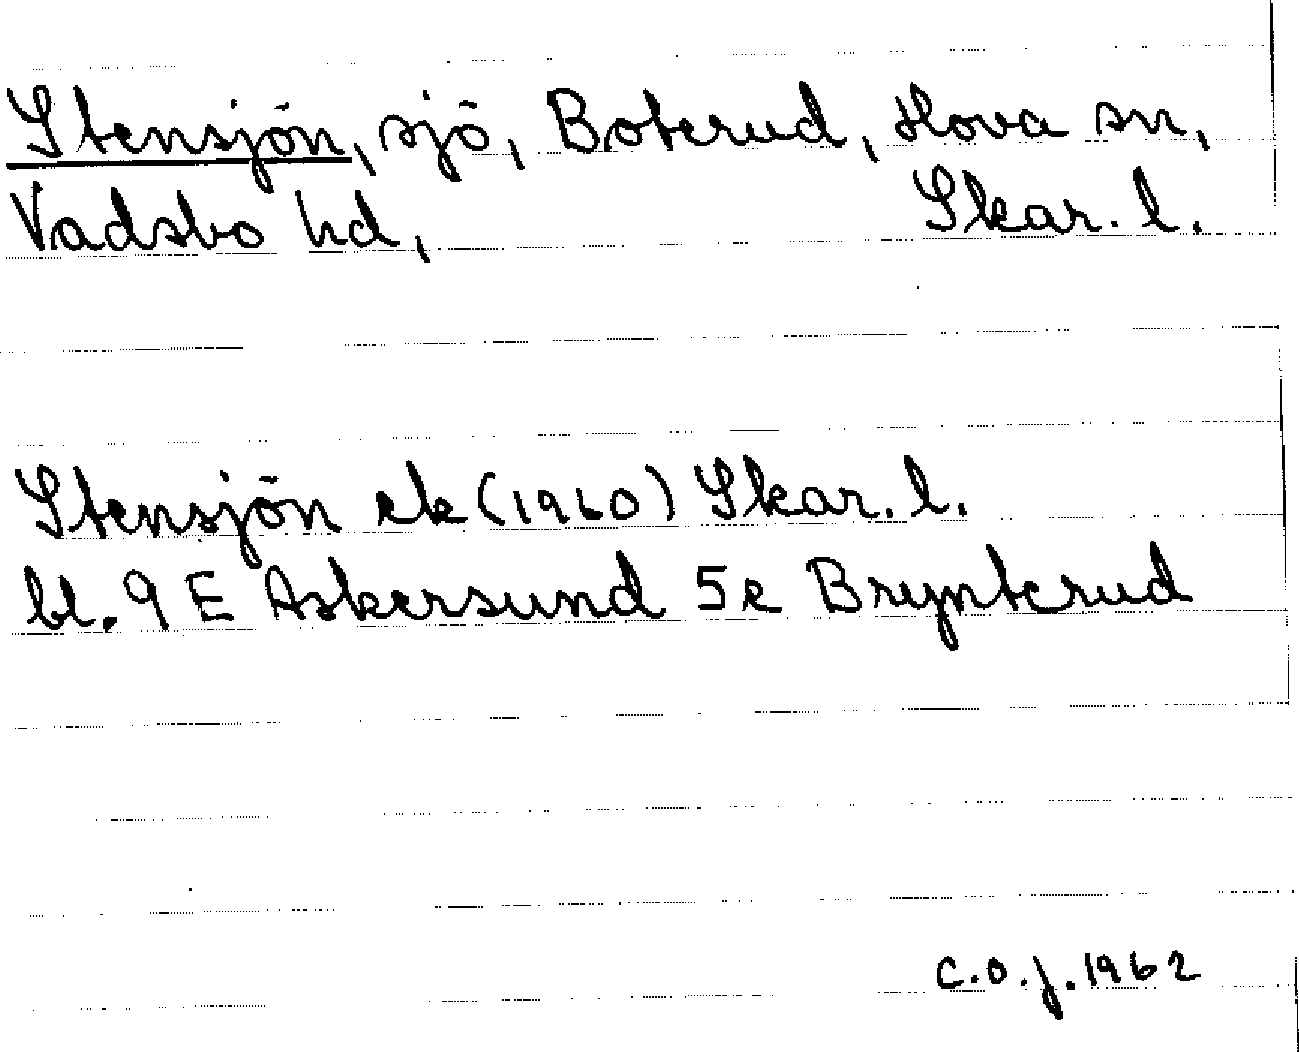 Stensjön, sjö, Boterud, Hova sn,
Vadsbo hd, Skar. l.
Stensjön ek (1960) Skar. l.
bl. 9 E Askersund 5e Brynterud
C.O.J. 1962